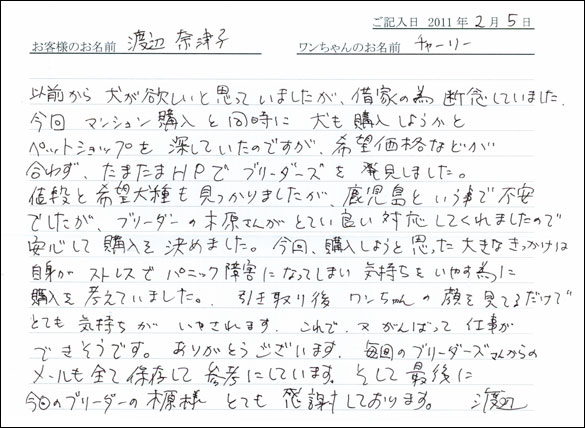 ご記入日 2011年2月5日
お客様のお名前 渡辺 奈津子 ワンちゃんのお名前 チャーリー
以前から 犬が欲しいと思っていましたが、借家の為 断念していました。
今回 マンション購入と同時に 犬も購入しようかと
ペットショップを 探していたのですが、希望価格などが
合わず、たまたまHPで ブリーダーズを 発見しました。
値段と希望犬種も見つかりましたが、鹿児島という事で不安
でしたが、ブリーダーの木原さんがとてい良い対応してくれましたので
安心して購入を決めました。今回、購入しようと思った大きなきっかけは
自身が ストレスで パニック障害になってしまい 気持ちをいやす為に
購入を考えていました。. 引き取り後 ワンちゃんの顔を見てるだけで
とても 気持ちが いやされます. これで、又 がんばって 仕事が
できそうです。ありがとうございます. 毎回のブリーダーズさんからの
メールも全て保存して参考にしています。そして最後に
今回のブリーダーの木原様 とても 感謝しております。 渡辺